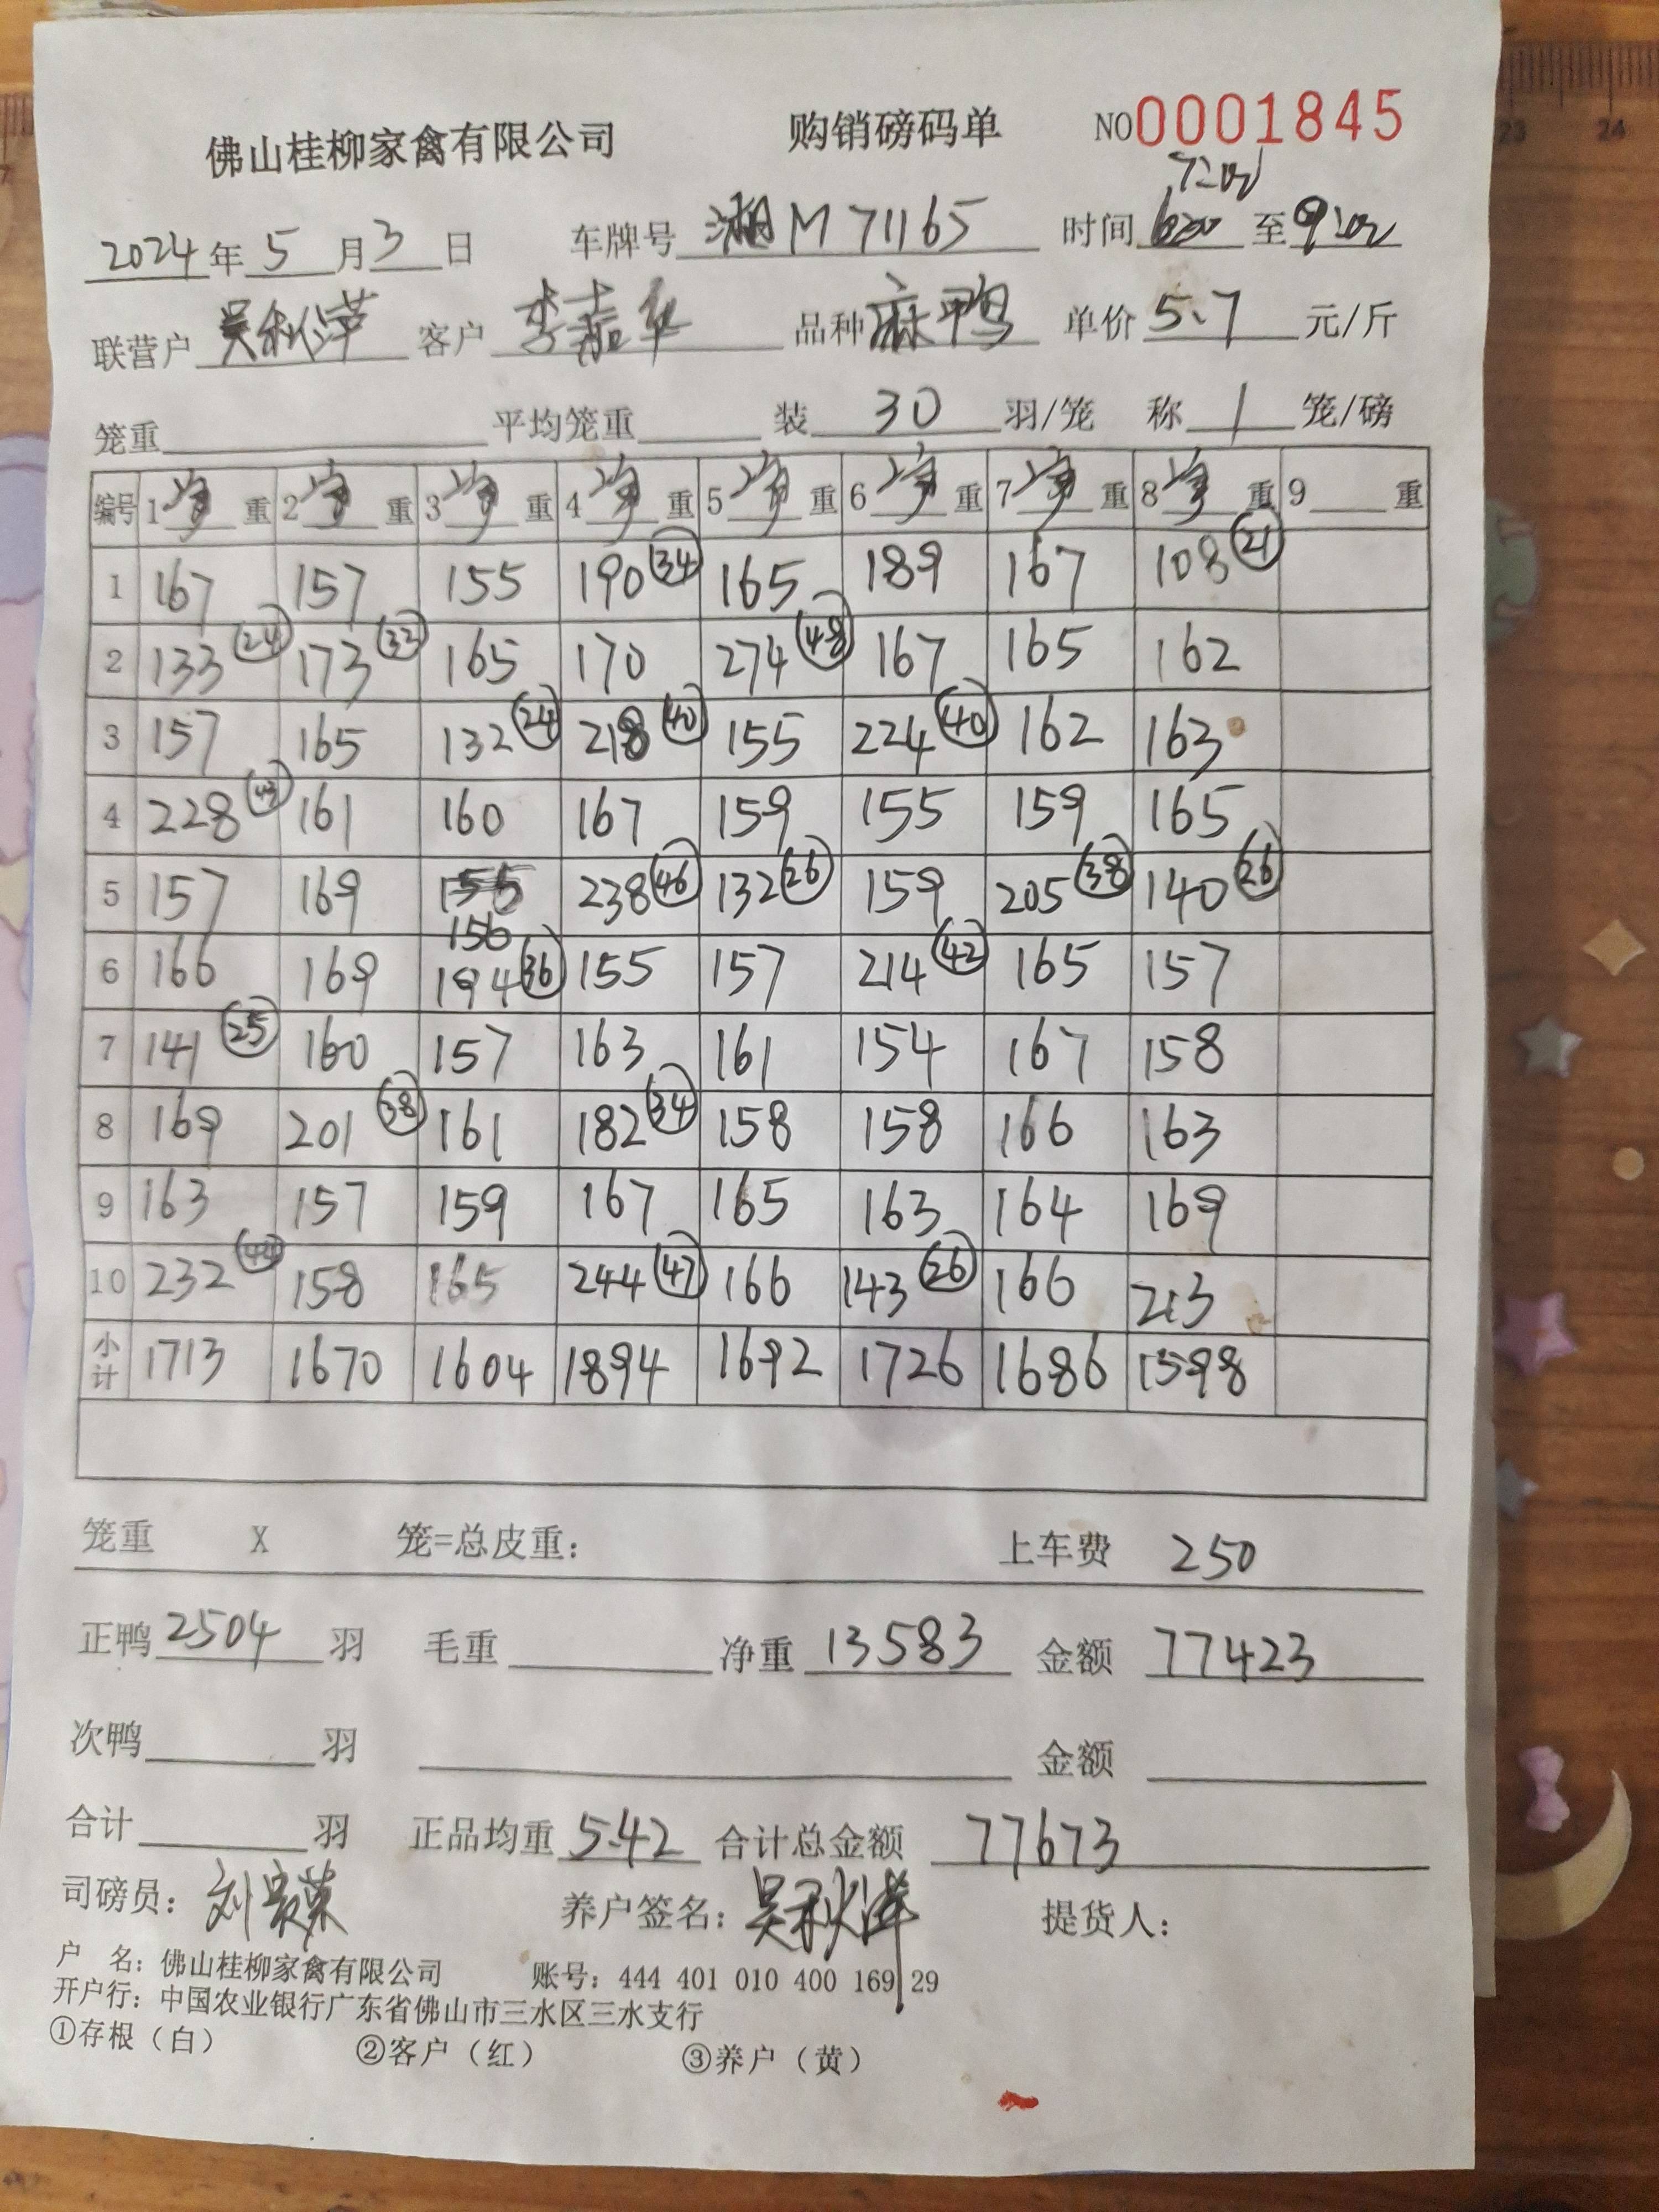 佛山桂柳家禽有限公司 购销磅码单 NO0001845
7:00
2024年5月3日 车牌号 湘M71165 时间 至9:00
联营户 吴秋萍 客户 李嘉华 品种 麻鸭 单价 5.7 元/斤
笼重 平均笼重 装 30 羽/笼 称 1 笼/磅
编号 1净重 2净重 3净重 4净重 5净重 6净重 7净重 8净重 9 重
1 167 157 155 190(34) 165 189 167 108(21)
2 133(24) 173(32) 165 170 274(48) 167 165 162
3 157 165 132(24) 218(40) 155 224(40) 162 163
4 228(43) 161 160 167 159 155 159 165
5 157 169 156 238(46) 132(26) 159 205(38) 140(26)
6 166 169 194(36) 155 157 214(42) 165 157
7 141(25) 160 157 163 161 154 167 158
8 169 201(38) 161 182(34) 158 158 166 163
9 163 157 159 167 165 163 164 169
10 232(44) 158 165 244(47) 166 143(26) 166 213
小计 1713 1670 1604 1894 1692 1726 1686 1598
笼重 X 笼=总皮重: 上车费 250
正鸭 2504 羽 毛重 净重 13583 金额 77423
次鸭 羽 金额
合计 羽 正品均重 5.42 合计总金额 77673
司磅员: 刘荣 养户签名: 吴秋萍 提货人:
户 名: 佛山桂柳家禽有限公司 账号: 444 401 010 400 169 29
开户行: 中国农业银行广东省佛山市三水区三水支行
①存根（白） ②客户（红） ③养户（黄）